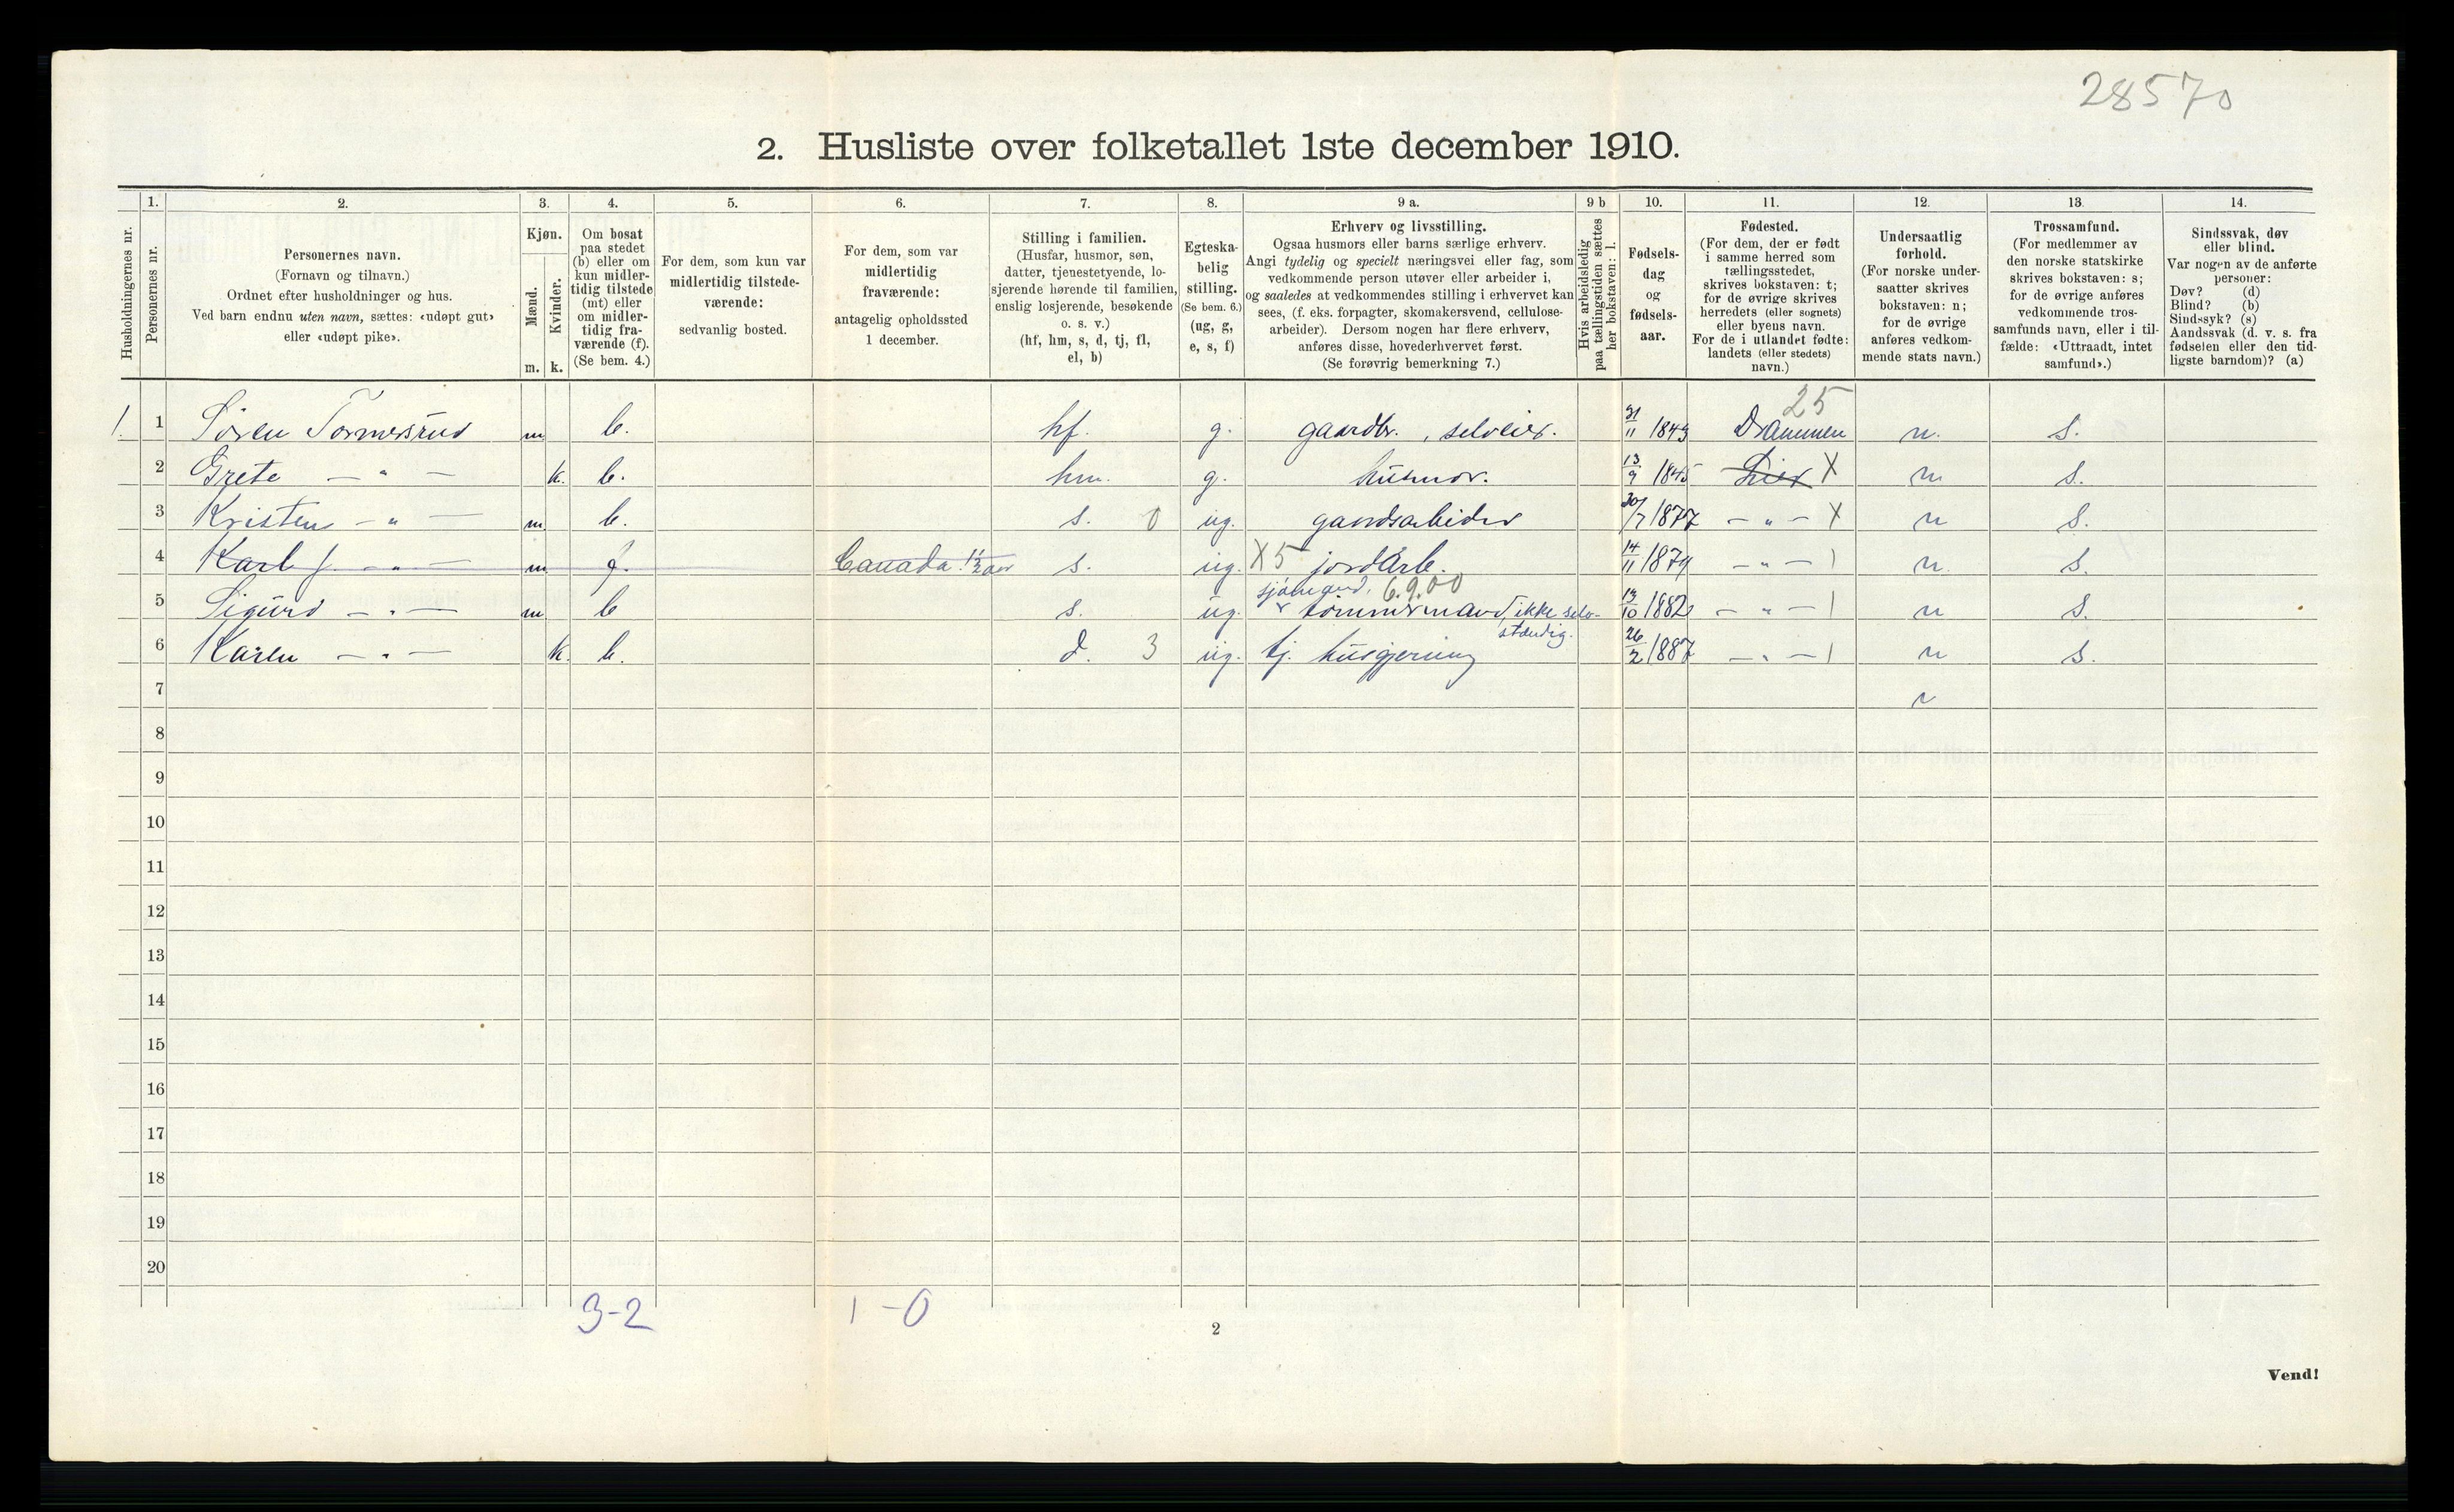 28570
2. Husliste over folketallet 1ste december 1910.
Husholdningernes nr.
1. Personernes nr.
2. Personernes navn. (Fornavn og tilnavn.) Ordnet efter husholdninger og hus. Ved barn endnu uten navn, sættes: «udøpt gut» eller «udøpt pike».
3. Kjøn. Mænd. m. Kvinder. k.
4. Om bosat paa stedet (b) eller om kun midlertidig tilstede (mt) eller om midlertidig fraværende (f). (Se bem. 4.)
5. For dem, som kun var midlertidig tilstedeværende: sedvanlig bosted.
6. For dem, som var midlertidig fraværende: antagelig opholdssted 1 december.
7. Stilling i familien. (Husfar, husmor, søn, datter, tjenestetyende, losjerende hørende til familien, enslig losjerende, besøkende o. s. v.) (hf, hm, s, d, tj, fl, el, b)
8. Egteskabelig stilling. (Se bem. 6.) (ug, g, e, s, f)
9 a. Erhverv og livsstilling. Ogsaa husmors eller barns særlige erhverv. Angi tydelig og specielt næringsvei eller fag, som vedkommende person utøver eller arbeider i, og saaledes at vedkommendes stilling i erhvervet kan sees, (f. eks. forpagter, skomakersvend, cellulosearbeider). Dersom nogen har flere erhverv, anføres disse, hovederhvervet først. (Se forøvrig bemerkning 7.)
9 b Hvis arbeidsledig paa tællingstiden sættes her bokstaven: l.
10. Fødselsdag og fødselsaar.
11. Fødested. (For dem, der er født i samme herred som tællingsstedet, skrives bokstaven: t; for de øvrige skrives herredets (eller sognets) eller byens navn. For de i utlandet fødte: landets (eller stedets) navn.)
12. Undersaatlig forhold. (For norske undersaatter skrives bokstaven: n; for de øvrige anføres vedkommende stats navn.)
13. Trossamfund. (For medlemmer av den norske statskirke skrives bokstaven: s; for de øvrige anføres vedkommende trossamfunds navn, eller i tilfælde: «Uttraadt, intet samfund».)
14. Sindssvak, døv eller blind. Var nogen av de anførte personer: Døv? (d) Blind? (b) Sindssyk? (s) Aandssvak (d. v. s. fra fødselen eller den tidligste barndom)? (a)
25
1. 1 Søren Tormersrud m. b. hf. g. gaardbr., selveier. 31/11 1843 Drammen n. s.
2 Grete — „ — k. b. hm. g. husmor. 13/9 1845 Lier X n s.
3 Kristen — „ — m. b. s. 0 ug. gaardsarbeider 30/7 1877 — „ — X n s.
4 Karl J. — „ — m. f. Canada 1 1/2 aar s. ug. X5 jordarb. 14/11 1879 — „ — | n. s.
sjømand. 6.9.00
5 Sigurd — „ — m. b s. ug. tømmermand, ikke selv- 13/10 1882 — „ — | n s.
stændig.
6 Karen — „ — k. b. d. 3 ug. tj. husgjerning 26/2 1887 — „ — | n s.
7 n
8
9
10
11
12
13
14
15
16
17
18
19
20
3-2 1-0
2
Vend!